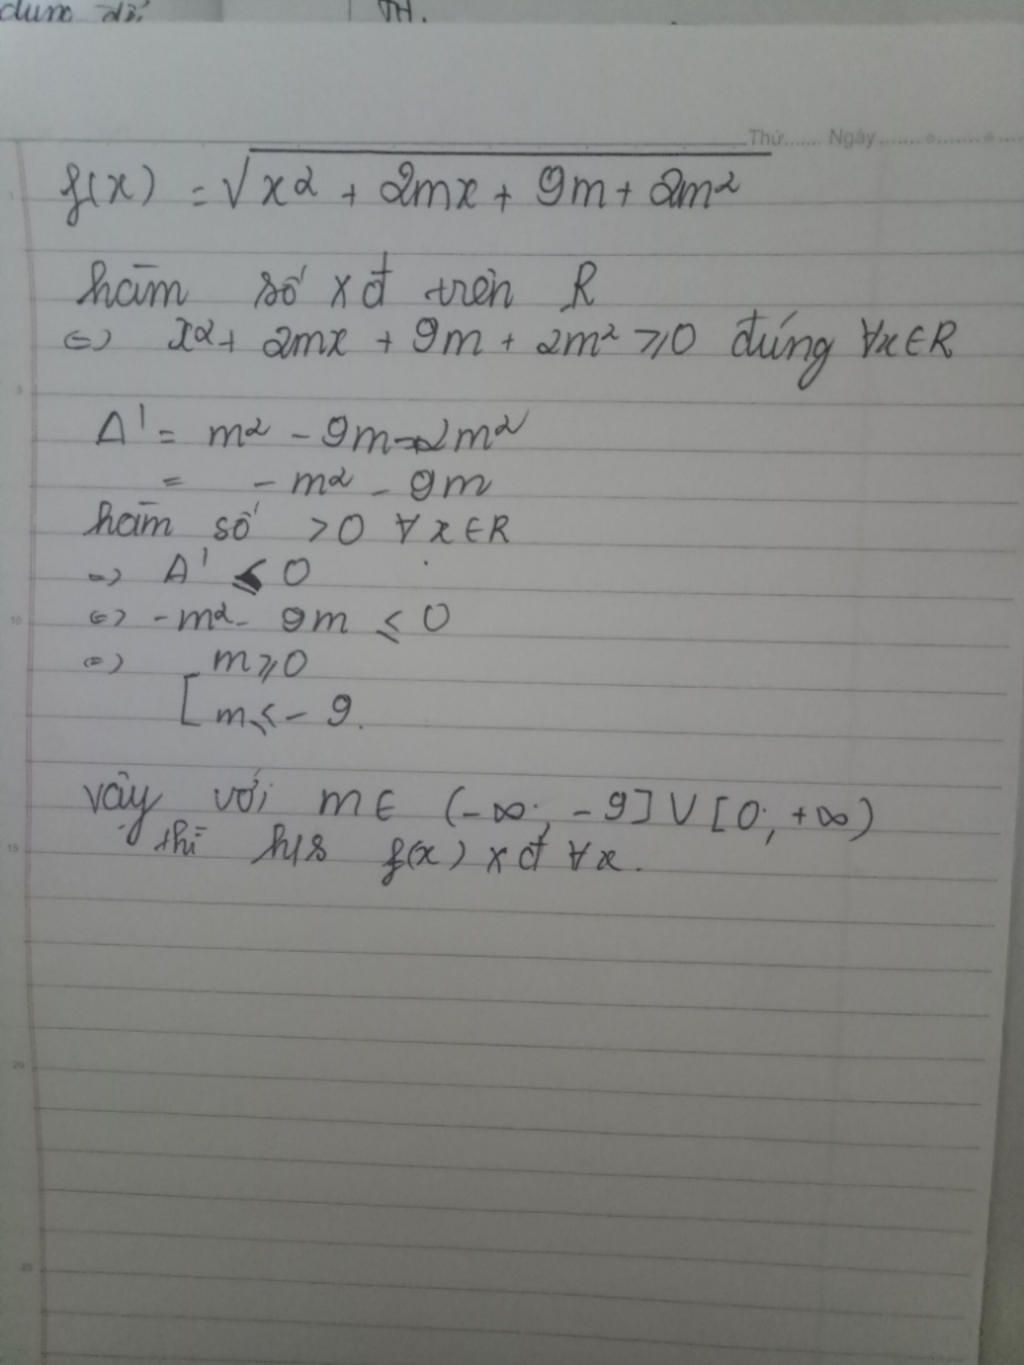 dụng
TH.
Thứ....... Ngày.......
f(x) = √x² + 2mx + 9m + 2m²
hàm số xđ trên R
<=> x² + 2mx + 9m + 2m² ⩾ 0 đúng ∀x∈R
Δ' = m² - 9m - 2m²
= - m² - 9m
5
hàm số > 0 ∀x∈R
=> Δ' ⩽ 0
<=> -m² - 9m ⩽ 0
10
=> [ m ⩾ 0
m ⩽ - 9.
vậy với m ∈ (-∞; -9] ∪ [0; +∞)
thì h/s f(x) xđ ∀x.
15
20
25